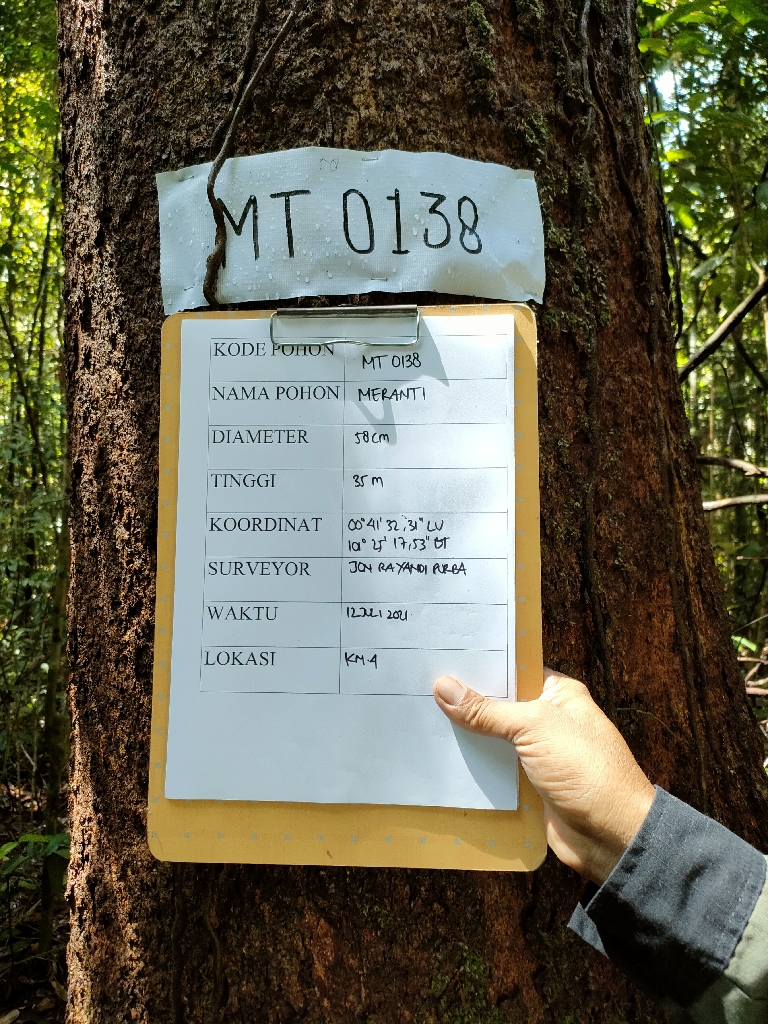 MT 0138
KODE POHON MT 0138
NAMA POHON MERANTI
DIAMETER 58 cm
TINGGI 35 m
KOORDINAT 00° 41' 32,31" LU
101° 25' 17,53" BT
SURVEYOR JON RAYANDI PURBA
WAKTU 12 JULI 2021
LOKASI KM.4